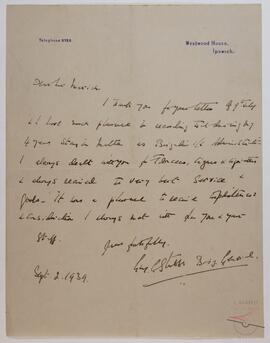 Telephone 2788.
Westwood House,
Ipswich.
Dear
I thank you for your letter of 9th July
& I have much pleasure in recording that during my
4 years stay in Malta as Brigade i/c Administration
I always dealt with you for Tobaccos, Cigars & Cigarettes
& always received the very best service &
goods. It was a pleasure to receive
consideration I always met with from you & your
staff.
Yours faithfully,
Brig. General.
Sept. 2. 1939.